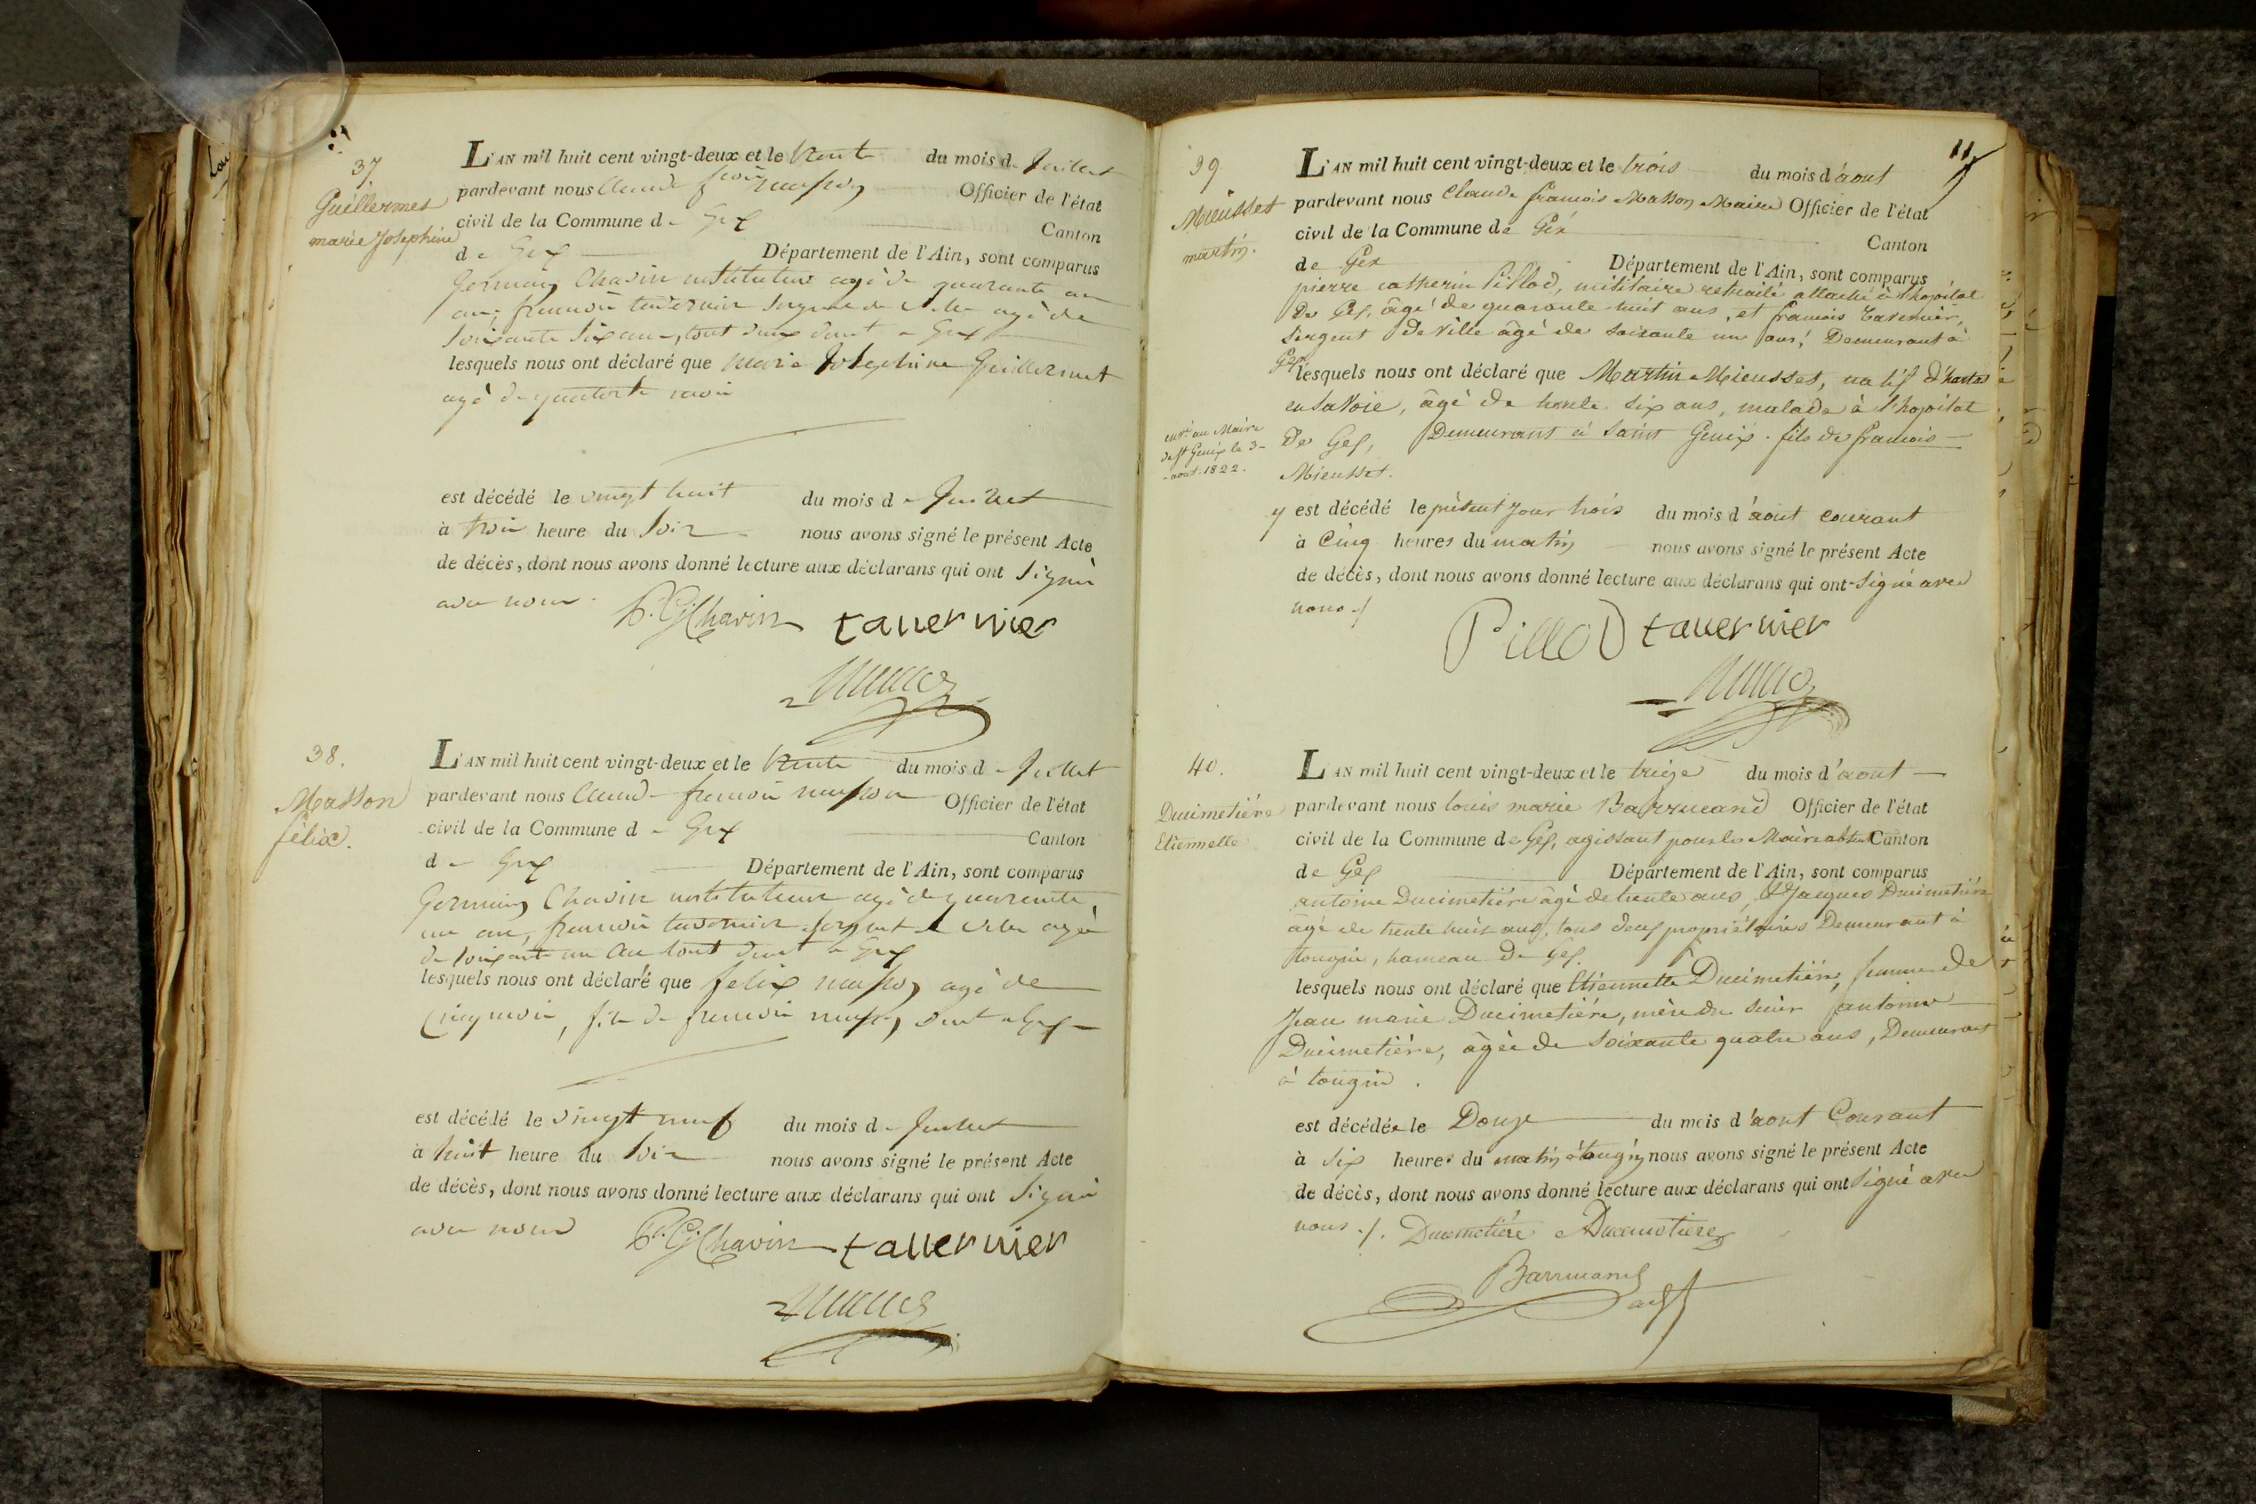 37
Guillermet
marie Josephine
L'AN mil huit cent vingt-deux et le trente du mois de Juillet
pardevant nous Claude françois masson Officier de l'état
civil de la Commune de Gex Canton
de Gex Département de l'Ain, sont comparus
Germain Chavin instituteur agé de quarante un
ans, françois tavernier Sergent de ville agé de
Soixante Six ans, tout deux dmt a Gex
lesquels nous ont déclaré que marie Josephine Guillermet
agé de quatorze mois
est décédé le vingt huit du mois de Juillet
à trois heure du Soir nous avons signé le présent Acte
de décès, dont nous avons donné lecture aux déclarans qui ont Signé
avec nous.
Chavin tavernier
38.
Masson
félix.
L'AN mil huit cent vingt-deux et le trente du mois de Juillet
pardevant nous Claude françois masson Officier de l'état
civil de la Commune de Gex Canton
de Gex Département de l'Ain, sont comparus
Germain Chavin instituteur agé de quarente
un an, françois tavernier Sergent de ville agé
de Soixante un an tout dmt a Gex
lesquels nous ont déclaré que felix masson agé de
Cinq mois, fils de françois masson dmt a Gex
est décédé le vingt neuf du mois de Juillet
à huit heure du Soir nous avons signé le présent Acte
de décès, dont nous avons donné lecture aux déclarans qui ont Signé
avec nous
Chavin tavernier
11
39.
Mieusset
martin.
L'AN mil huit cent vingt-deux et le trois du mois d'aout
pardevant nous Claude francois Masson Maire Officier de l'état
civil de la Commune de Gex Canton
de Gex Département de l'Ain, sont comparus
pierre Pillod, militaire retraité attaché à l'hopital
de Gex, âgé de quarante huit ans, et francois Tavernier,
Sergent De Ville âgé de soixante un ans, Demeurant à
Gex
lesquels nous ont déclaré que Martin Mieusset, natif
en Savoie, âgé de trente six ans, malade à l'hopital
de Gex, Demeurant à Saint Genix. fils de francois
Mieusset.
au Maire
de St Genix le 3
aout 1822.
y est décédé le présent Jour trois du mois d'aout courant
à Cinq heures du matin nous avons signé le présent Acte
de décès, dont nous avons donné lecture aux déclarans qui ont Signé avec
nous ./
PilloD tavernier
40.
Ducimetière
Etiennette
L'AN mil huit cent vingt-deux et le treize du mois d'aout
pardevant nous louis marie Barrucand Officier de l'état
civil de la Commune de Gex, agissant pour le Maire absent Canton
de Gex Département de l'Ain, sont comparus
antoine Ducimetière âgé de trente ans, & Jacques Ducimetière
âgé de trente huit ans, tous deux propriétaires Demeurant à
tougin, hameau De Gex.
lesquels nous ont déclaré que Etiennette Ducimetière, femme de
Jean marie Ducimetière, mère du sieur antoine
Ducimetière, âgée de Soixante quatre ans, Demeurant
à tougin.
est décédée le Douze du mois d'aout Courant
à six heures du matin à tougin nous avons signé le présent Acte
de décès, dont nous avons donné lecture aux déclarans qui ont Signé avec
nous ./. Ducimetière Ducimetière
Barrucand adjt